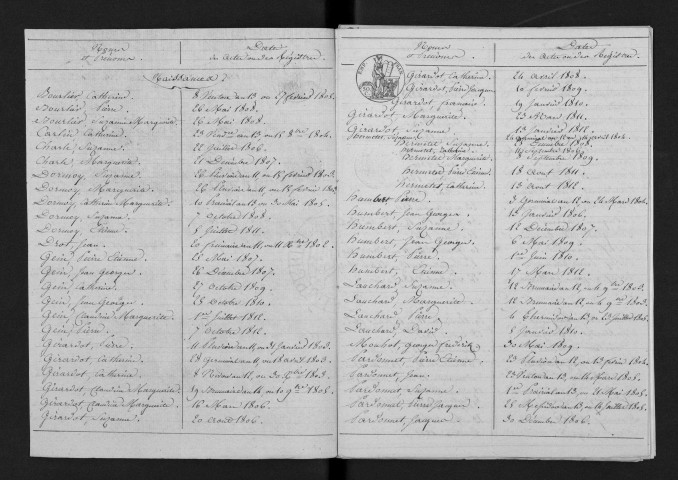 Noms et Prénoms. Date des Actes ou des Registres
Naissances.
Bourlier, Catherine. 8 Ventose an 13 ou 27 février 1805.
Bourlier, Pierre. 26 Mai 1808.
Bourlier, Suzanne Marguerite. 26 Mai 1808.
Carlin, Catherine. 1804.
Charle, Suzanne. 22 Juillet 1806.
Charle, Marguerite. 21 Décembre 1807.
Dormoy, Suzanne. 26 Pluviose an 11 ou 15 février 1803.
Dormoy, Marguerite. 26 Pluviose an 11 ou 15 février 1803.
Dormoy, Catherine Marguerite. 10 Prairial an 13 ou 30 Mai 1805.
Dormoy, Suzanne. 7 Octobre 1808.
Dormoy, Etienne. 8 Juillet 1811.
Drot, Jean. 20 frimaire an 11, ou 1802.
Gein, Pierre Etienne. 25 Mai 1807.
Gein, Jean Georges. 26 Décembre 1807.
Gein, Catherine. 27 Octobre 1809.
Gein, Jean Georges. 28 Octobre 1810.
Gein, Claudine Marguerite. 1er Juillet 1812.
Gein, Pierre. 7 Octobre 1812.
Girardot, Pierre. 11 Pluviose an 11, ou 31 Janvier 1803.
Girardot, Catherine. 28 Germinal an 11, ou 18 avril 1803.
Girardot, Catherine. 8 Nivose an 12, ou 30 Xbre 1803.
Girardot, Claudine Marguerite. 19 Brumaire an 14, ou 10 9bre 1805.
Girardot, Claudine Marguerite. 16 Mars 1806.
Girardot, Suzanne. 20 Août 1806.
Noms et Prénoms. Date des Actes ou des Registres
Girardot, Catherine. 24 Avril 1808.
Girardot, Pierre Jacques. 10 février 1809.
Girardot, françois. 19 Janvier 1810.
Girardot, Marguerite. 1811.
Girardot, Suzanne. 13 Janvier 1812.
Hermetet, Suzanne. Décembre 1808.
Hermetet, Catherine.
Hermetet, Marguerite. Septembre 1809.
Hermetet, Pierre Etienne. 18 Août 1811.
Hermetet, Catherine. 13 Août 1812.
Humbert, Pierre. 3 Germinal an 12, ou 24 Mars 1804.
Humbert, Jean Georges. 15 Janvier 1806.
Humbert, Suzanne. 12 Décembre 1807.
Humbert, Jean Georges. 6 Mai 1809.
Humbert, Pierre. 1er Juin 1810.
Humbert, Etienne. 17 Mars 1812.
Louchard, Suzanne. 11 Brumaire an 12, ou 9bre 1803.
Louchard, Marguerite. 11 Brumaire an 12, ou 9bre 1803.
Louchard, Pierre. 4 Thermidor an 13 ou 23 Juillet 1805.
Louchard, David. 8 Janvier 1810.
Moubot, Georges frédéric. 30 Mai 1809.
Pardonnet, Pierre Etienne. 23 Pluviose an 12, ou 13 février 1804.
Pardonnet, Jean. 23 Ventose an 13, ou 14 Mars 1805.
Pardonnet, Suzanne. 1er Prairial an 13, ou 21 Mai 1805.
Pardonnet, Pierre Jacques. 25 Messidor an 13, ou 14 Juillet 1805.
Pardonnet, Jacques. 30 Décembre 1806.